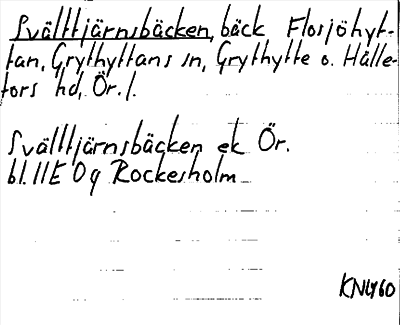 Svälttjärnsbäcken, bäck, Flosjöhyt-
tan, Grythyttans sn, Grythytte o. Hälle-
fors hd, Ör. l.
Svälttjärnsbäcken ek Ör.
bl. 11E 0g Rockesholm
KNy60